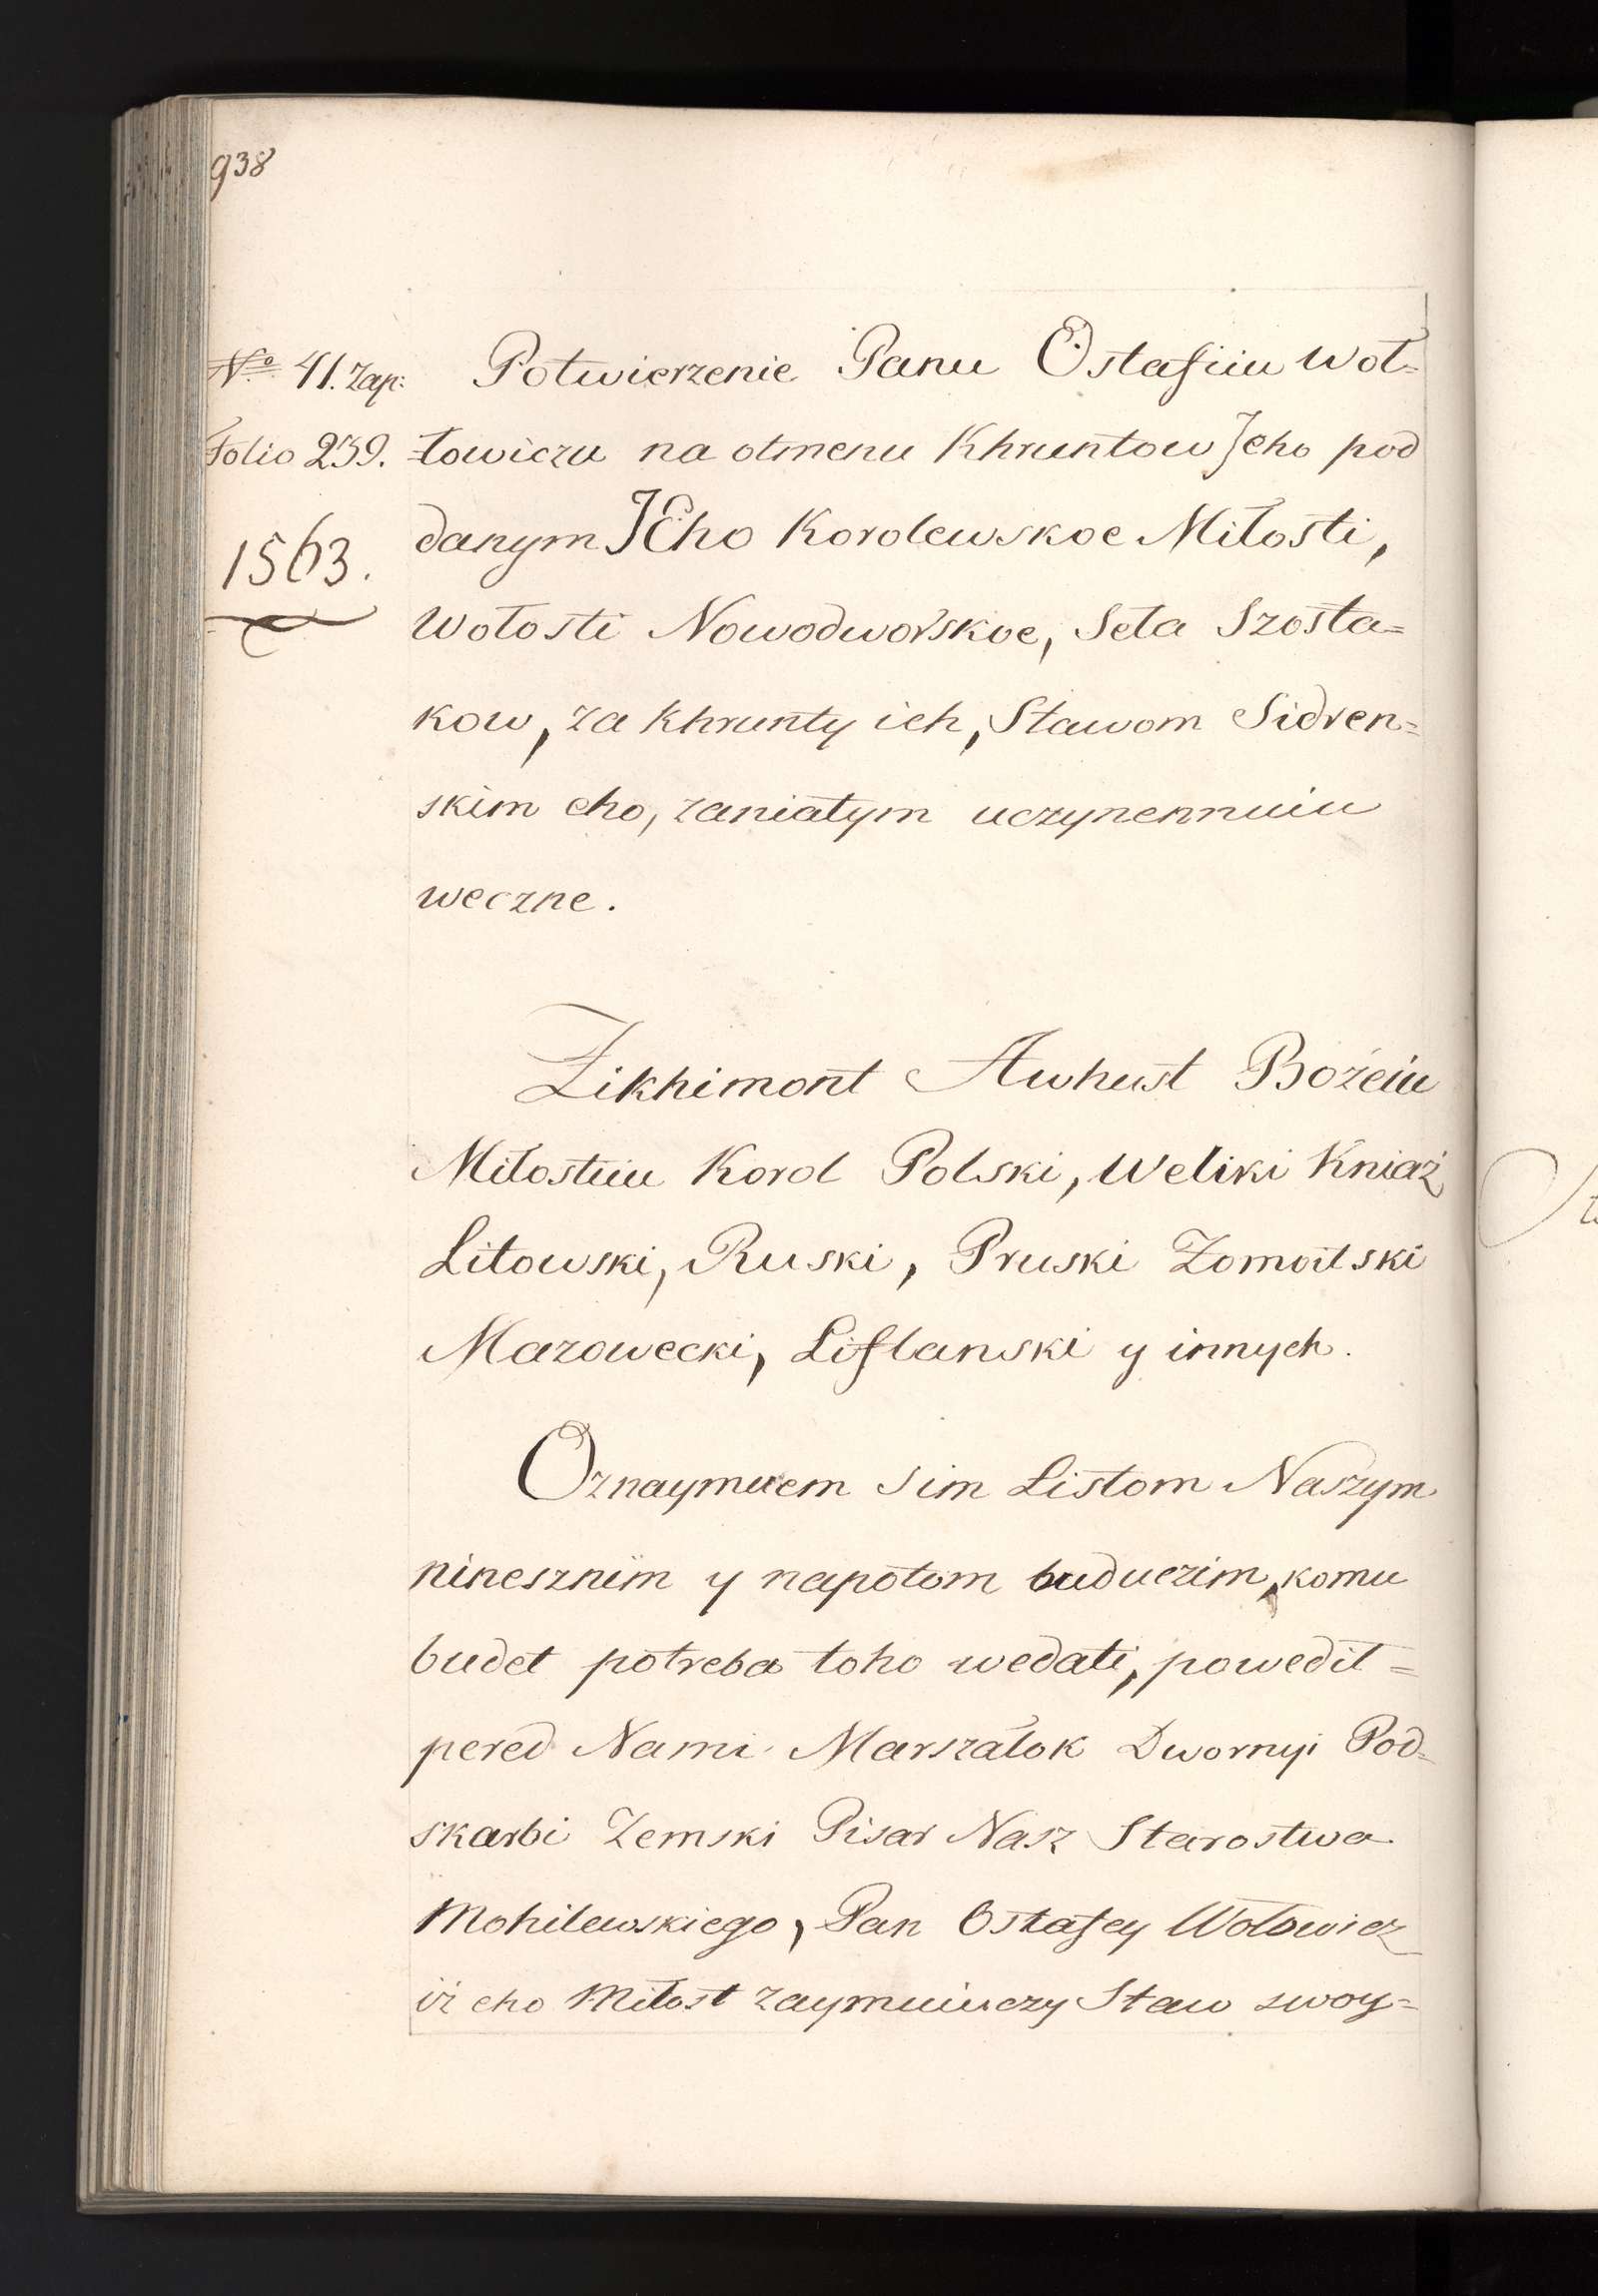 938
No 41. Zap: Potwierzenie Panu Ostafiiu Woł=
Folio 239. łowiczu na otmenu Khruntow Jeho pod
1563. danym JEho Korolewskoe Miłosti,
Wołosti Nowodworskoe, Seła Szosta=
kow, za Khrunty ich, Stawom Sidren=
skim eho, zaniatym uczynennuiu
weczne.
Zikhimont Awhust Bożeiu
Miłostiiu Korol Polski, Weliki Kniaź
Litowski, Ruski, Pruski Żomoitski
Mazowecki, Liflanski y innych.
Oznaymuem Sim Listom Naszym
nineszniim y napotom buduczim, komu
budet potreba toho wedati, powedił=
pered Nami Marszałok Dwornyi Pod=
skarbi Zemski Pisar Nasz Starostwa
Mohilewskiego, Pan Ostafey Wołowicz
iż eho Miłost zaymuiuczy Staw swoy=